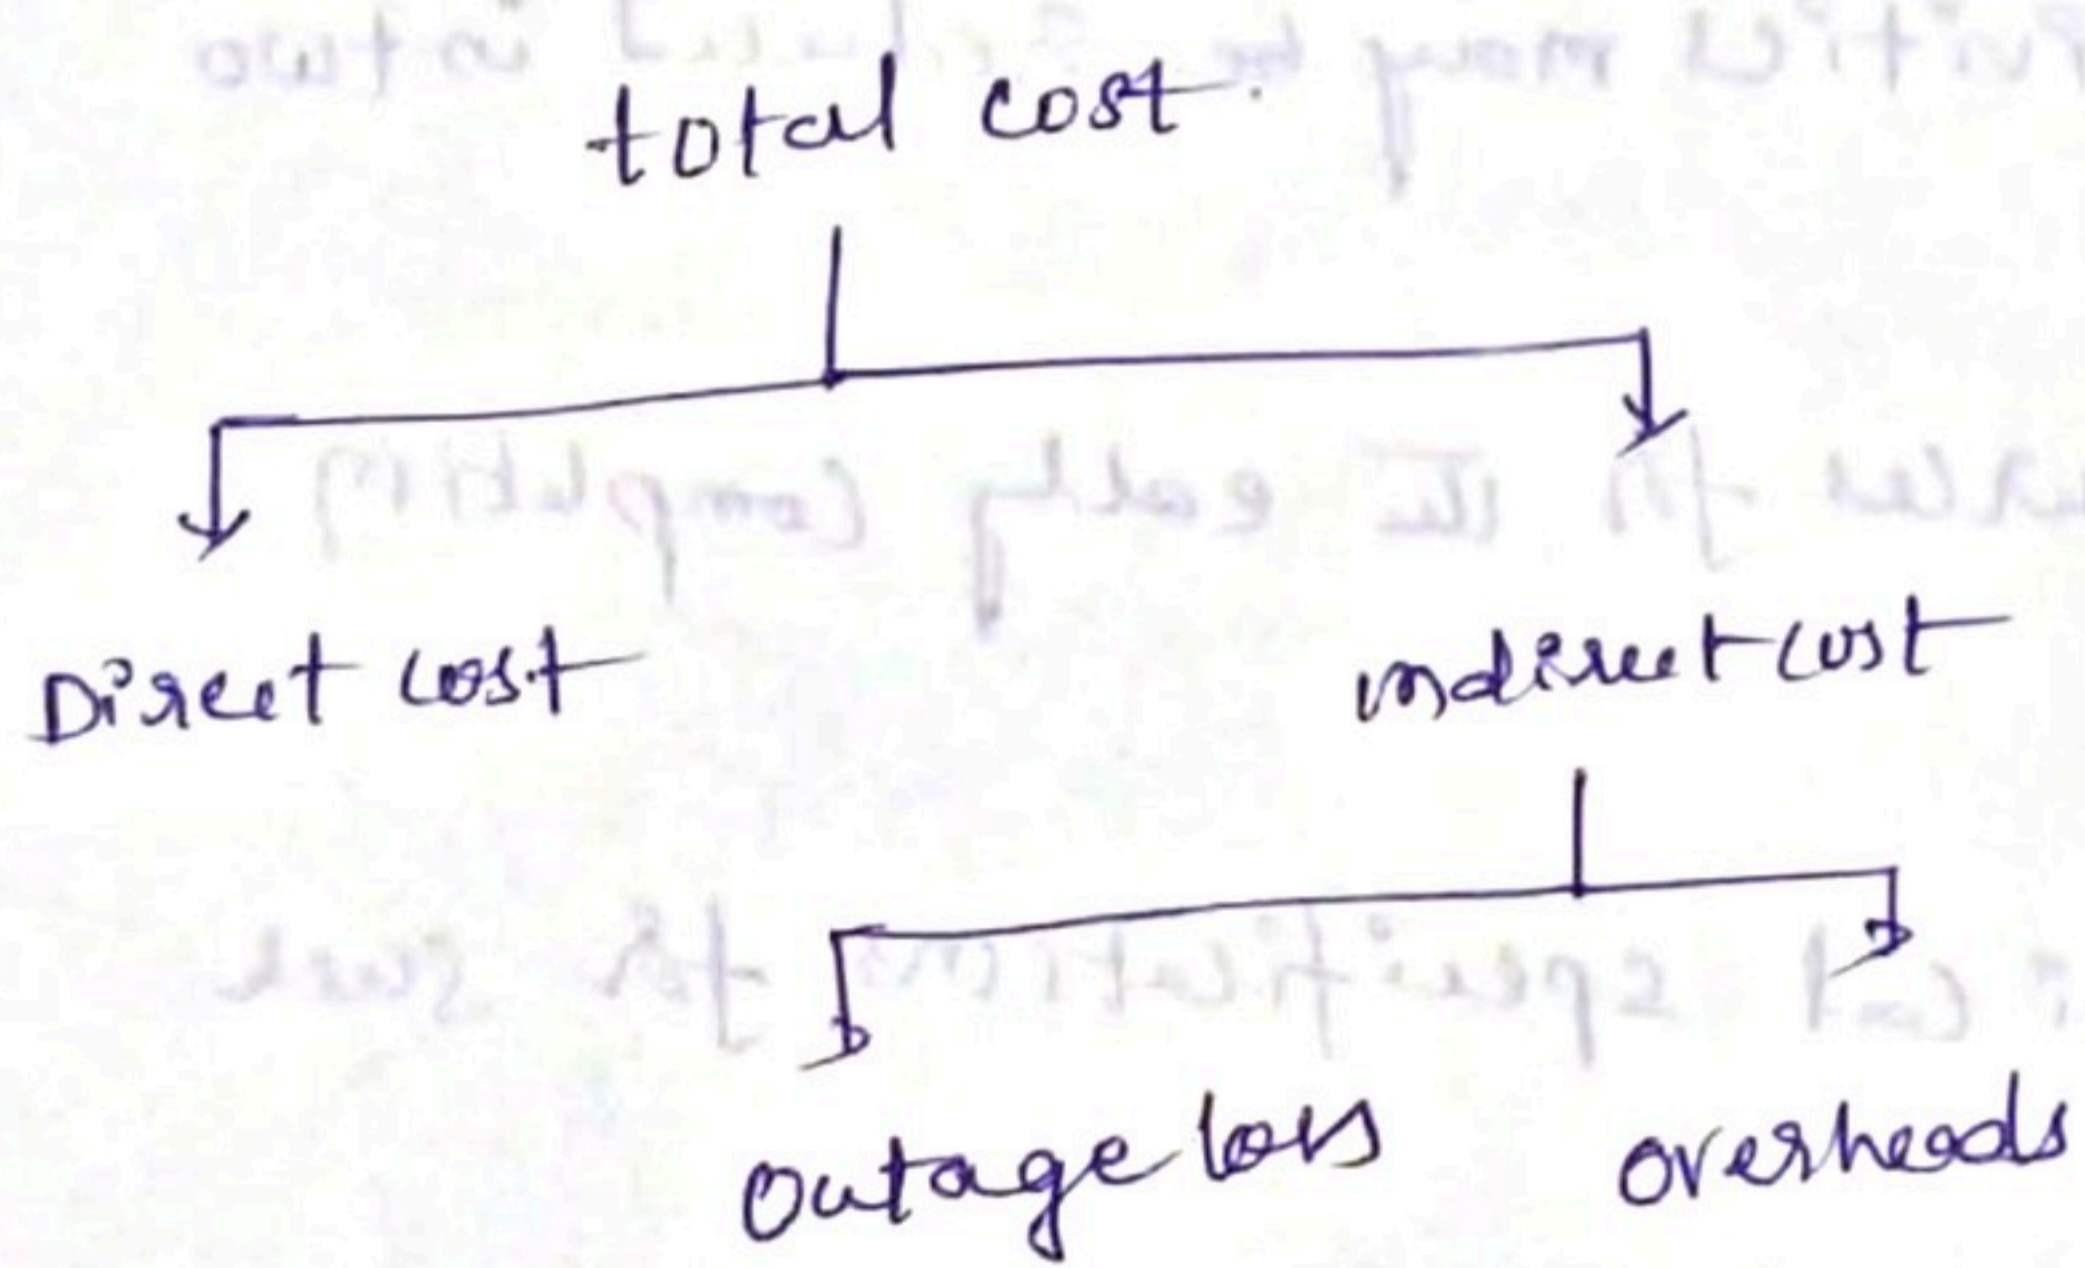 total cost.
Direct cost
indirect cost
Outage loss
overheads